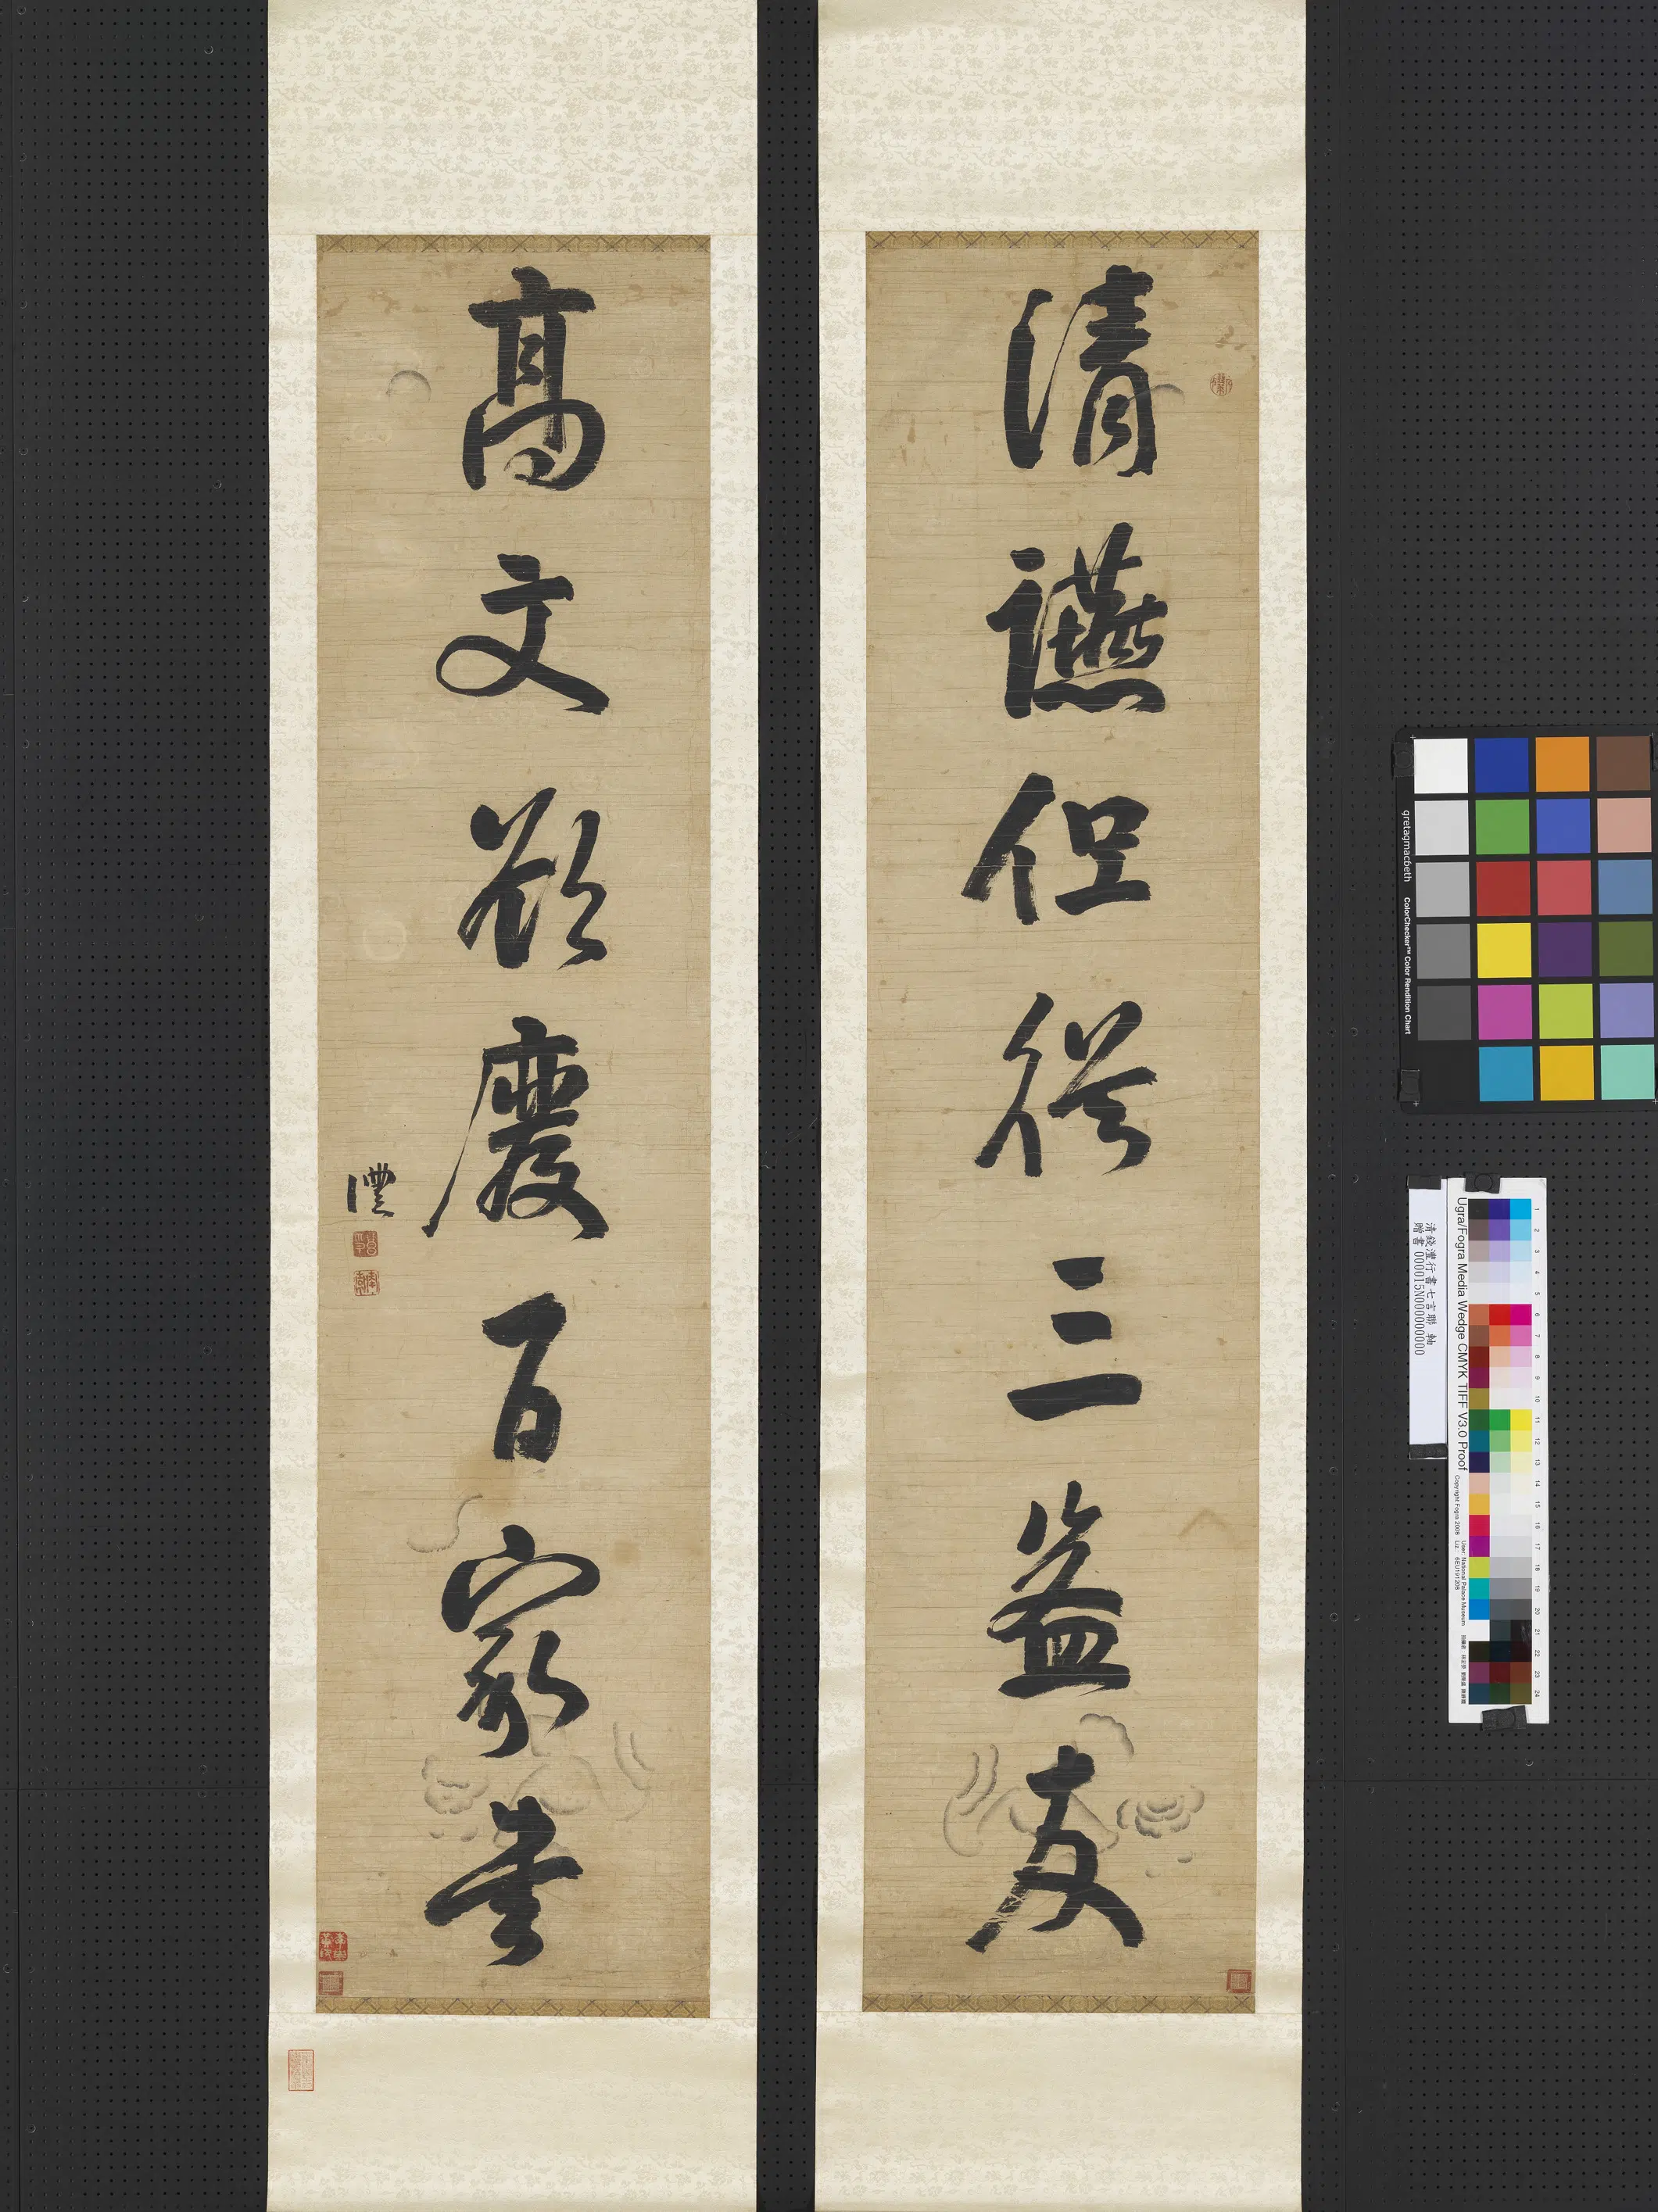 清讌但從三益友
高文欲廢百家書
灃
gretagmacbeth ColorChecker™ Color Rendition Chart
清錢灃行書七言聯 軸
贈書 000015N000000000
Ugra/Fogra Media Wedge CMYK TIFF V3.0 Proof
Copyright Fogra 2008
User: National Palace Museum
1
2
3
4
5
6
7
8
9
10
11
12
13
14
15
16
17
18
19
20
21
22
23
24